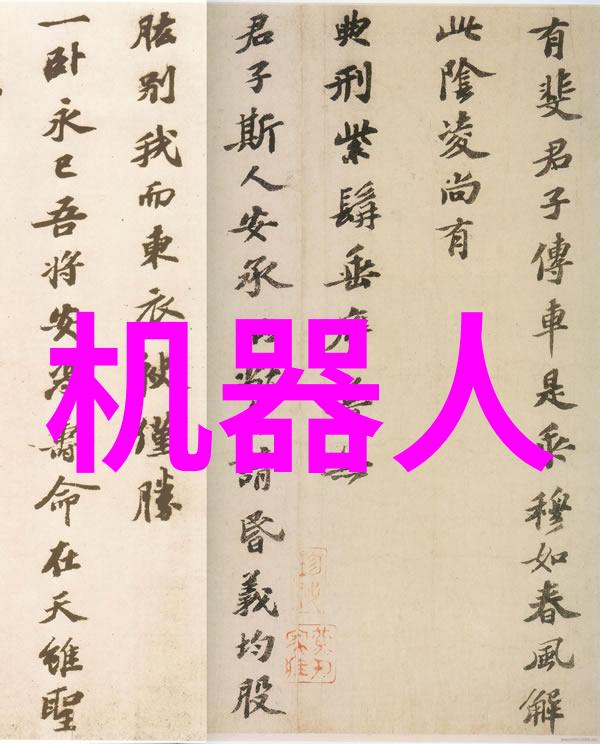 有斐君子傳車是乘穆如春風解
此陰凌尚有
典刑紫髯垂
君子斯人安承請昏義均股
肱別我而東衣袂僅勝
一卧永已吾將安壽命在天雖聖
机器人